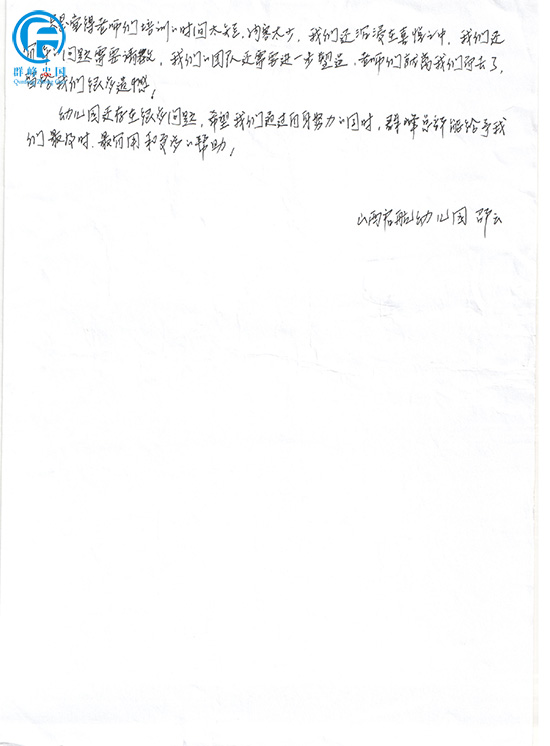 是觉得老师们培训的时间太短,内容太少,我们还沉浸在喜悦之中,我们还
有多的问题需要请教,我们的团队还需要进一步塑造,老师们就离我们而去了,
留给我们很多遗憾!
幼儿园还存在很多问题,希望我们通过自身努力的同时,群峰总部能给予我
们最及时、最有用和更多的帮助!
山西 幼儿园 邵云
群峰